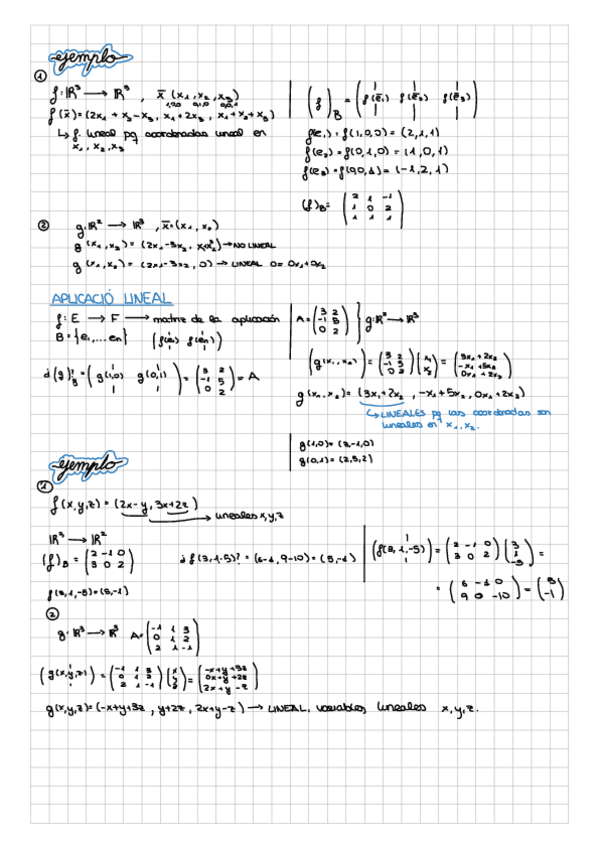 ejemplo
① f: ℝ³ → ℝ³ , x̄ (x₁, x₂, x₃)
1,0,0 0,1,0 0,0,1
f(x̄) = (2x₁ + x₂ - x₃, x₁ + 2x₃, x₁ + x₂ + x₃)
↳ f. lineal pq coordenadas lineal en
x₁, x₂, x₃
(f)B = (f(ē₁) f(ē₂) f(ē₃))
f(e₁) = f(1,0,0) = (2,1,1)
f(e₂) = f(0,1,0) = (1,0,1)
f(e₃) = f(0,0,1) = (-1,2,1)
(f)B =
2 1 -1
1 0 2
1 1 1
② g: ℝ² → ℝ³ , x̄ = (x₁, x₂)
g(x₁, x₂) = (2x₁ - 3x₂, x₁x₂²) → NO LINEAL
g(x₁, x₂) = (2x₁ - 3x₂, 0) → LINEAL 0 = 0x₁ + 0x₂
APLICACIÓ LINEAL
f: E → F → matriz de la aplicación
B = {e₁, ... en} (f(e₁) f(en))
¿(g)B? = (g(1,0) g(0,1)) =
3 2
-1 5
0 2
= A
A =
3 2
-1 5
0 2
} g: ℝ² → ℝ³
(g(x₁, x₂)) =
3 2
-1 5
0 2
(x₁ x₂) =
3x₁ + 2x₂
-x₁ + 5x₂
0x₁ + 2x₂
g(x₁, x₂) = (3x₁ + 2x₂, -x₁ + 5x₂, 0x₁ + 2x₂)
↳ LINEALES pq las coordenadas son
lineales en x₁, x₂.
g(1,0) = (3,-1,0)
g(0,1) = (2,5,2)
ejemplo
① f(x,y,z) = (2x - y, 3x + 2z)
→ lineales x,y,z
ℝ³ → ℝ²
(f)B =
2 -1 0
3 0 2
¿f(3,1,-5)? = (6-1, 9-10) = (5,-1)
f(3,1,-5) = (5,-1)
(f(3,1,-5)) =
2 -1 0
3 0 2
(3 1 -5) =
=
6 -1 0
9 0 -10
= (5 -1)
② g: ℝ³ → ℝ³ A =
-1 1 3
0 1 2
2 1 -1
(g(x,y,z)) =
-1 1 3
0 1 2
2 1 -1
(x y z) =
-x+y+3z
0x+y+2z
2x+y-z
g(x,y,z) = (-x+y+3z, y+2z, 2x+y-z) → LINEAL, variables lineales x,y,z.